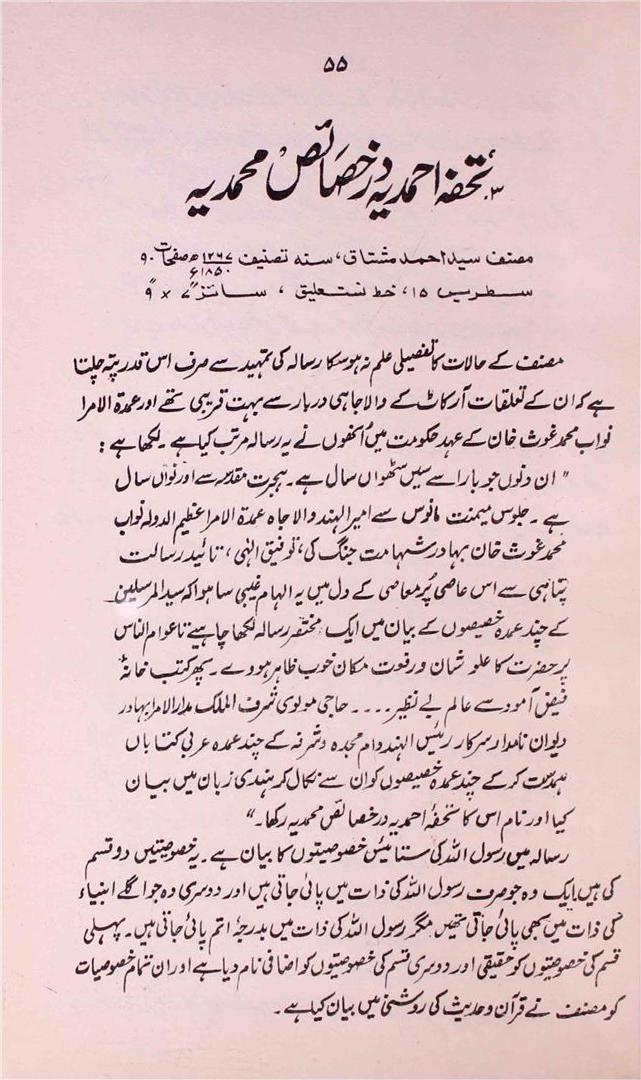 ۵۵
۳. تحفہ احمدیہ در خصائص محمدیہ
مصنف سید احمد مشتاق، سنہ تصنیف ۱۲۶۷ھ صفحات ۹۰
۱۸۵۰ء
سطریں ۱۵، خط نستعلیق، سائز ۷" × ۹"
مصنف کے حالات کا تفصیلی علم نہ ہوسکا رسالہ کی تمہید سے صرف اس قدر پتہ چلتا
ہے کہ ان کے تعلقات آرکاٹ کے والاجاہی دربار سے بہت قریبی تھے اور عمدۃ الامرا
نواب محمد غوث خان کے عہد حکومت میں اُنھوں نے یہ رسالہ مرتب کیا ہے۔ لکھا ہے :
"ان دنوں جو باراسے سیں سٹھواں سال ہے۔ ہجرت مقدسہ سے اور نواں سال
ہے۔ جلوس میمنت مانوس سے امیر الہند والا جاہ عمدۃ الامرا عظیم الدولہ نواب
محمد غوث خان بہادر شہامت جنگ کی، توفیق الٰہی، تائید رسالت
پناہی سے اس عاصی پُر معاصی کے دل میں یہ الہام غیبی سا ہوا کہ سید المرسلین
کے چند عمدہ خصیصوں کے بیان میں ایک مختصر رسالہ لکھا چاہیے تا عوام الناس
پر حضرت کا علو شان و رفعت مکان خوب ظاہر ہووے۔ پھر کتب خانۂ
فیض آمود سے عالم بے نظیر .... حاجی مولوی شرف الملک مدار الامرا بہادر
دیوان نامدار سرکار رئیس الہند دام مجدہ و شرفہ کے چند عمدہ عربی کتاباں
ہمدست کر کے چند عمدہ خصیصوں کو ان سے نکال کر ہندی زبان میں بیان
کیا اور نام اس کا تحفۂ احمدیہ در خصائص محمدیہ رکھا۔"
رسالہ میں رسول اللہ کی ستائیس خصوصیتوں کا بیان ہے۔ یہ خصوصیتیں دو قسم
کی ہیں ایک وہ جو صرف رسول اللہ کی ذات میں پائی جاتی ہیں اور دوسری وہ جو اگلے انبیاء
کی ذات میں بھی پائی جاتی تھیں مگر رسول اللہ کی ذات میں بدرجۂ اتم پائی جاتی ہیں۔ پہلی
قسم کی خصوصیتوں کو حقیقی اور دوسری قسم کی خصوصیتوں کو اضافی نام دیا ہے اور ان تمام خصوصیات
کو مصنف نے قرآن و حدیث کی روشنی میں بیان کیا ہے۔